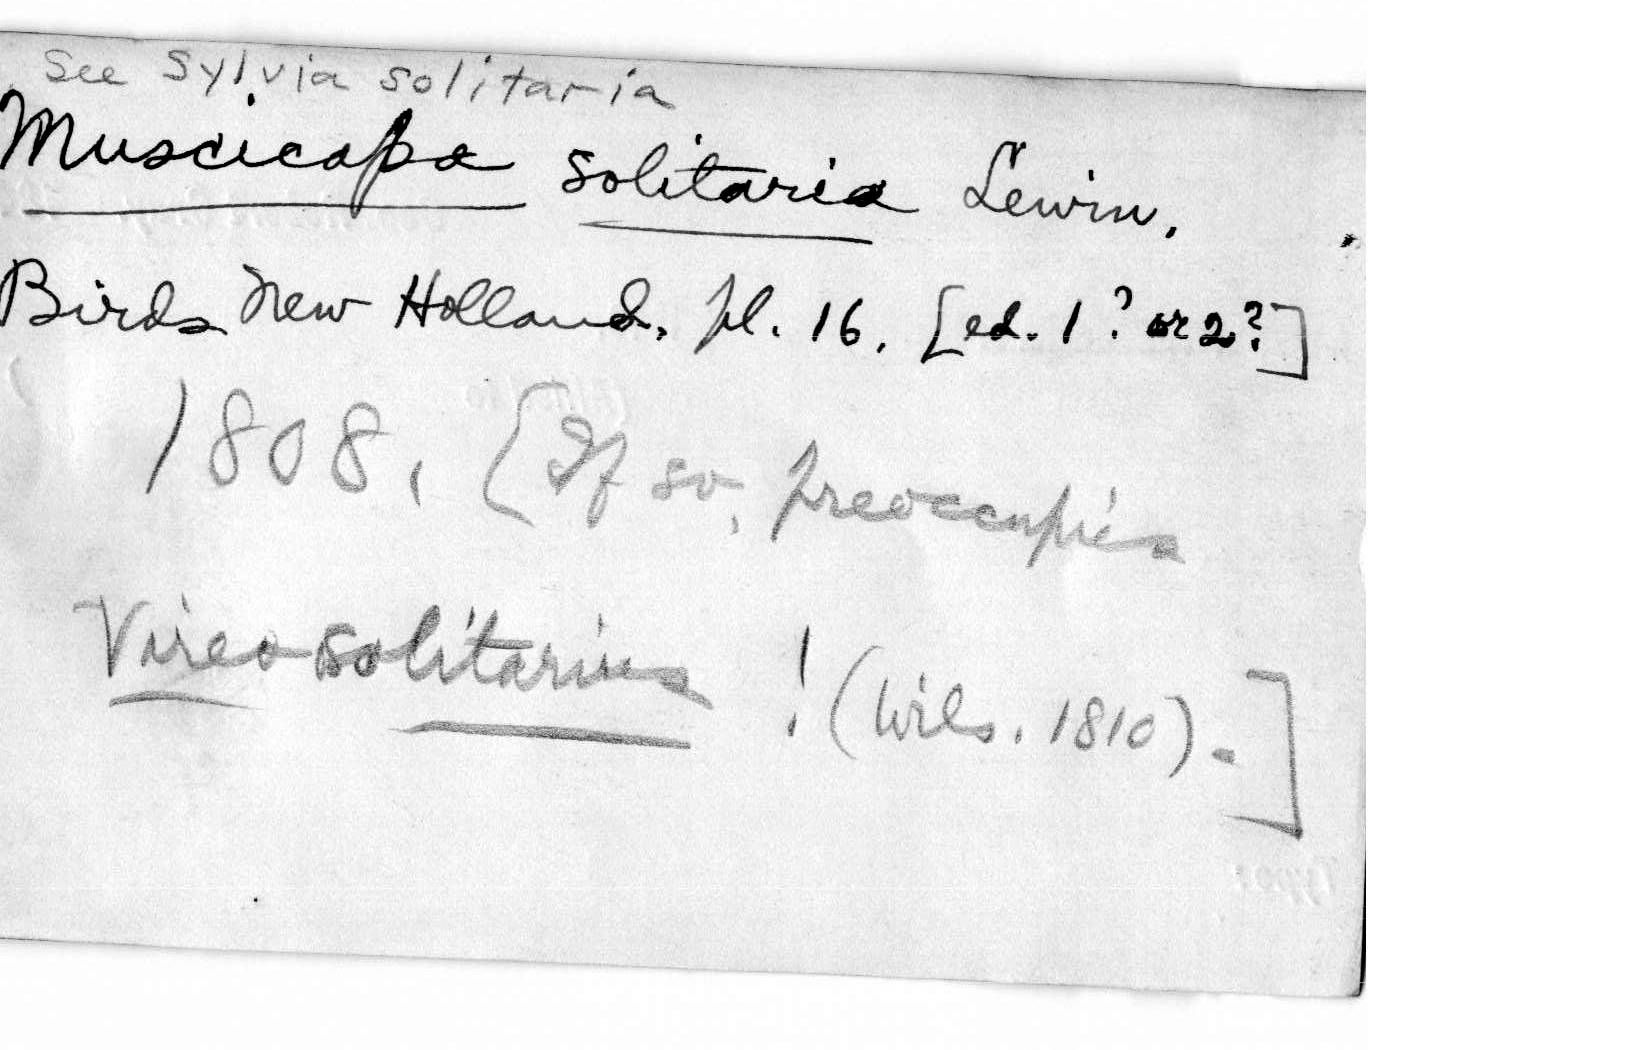 See Sylvia solitaria
Muscicapa solitaria Lewin,
Birds New Holland, pl. 16, [ed. 1? or 2?]
1808, [If so, preoccupies
Vireo solitarius! (Wils. 1810).]
Type: